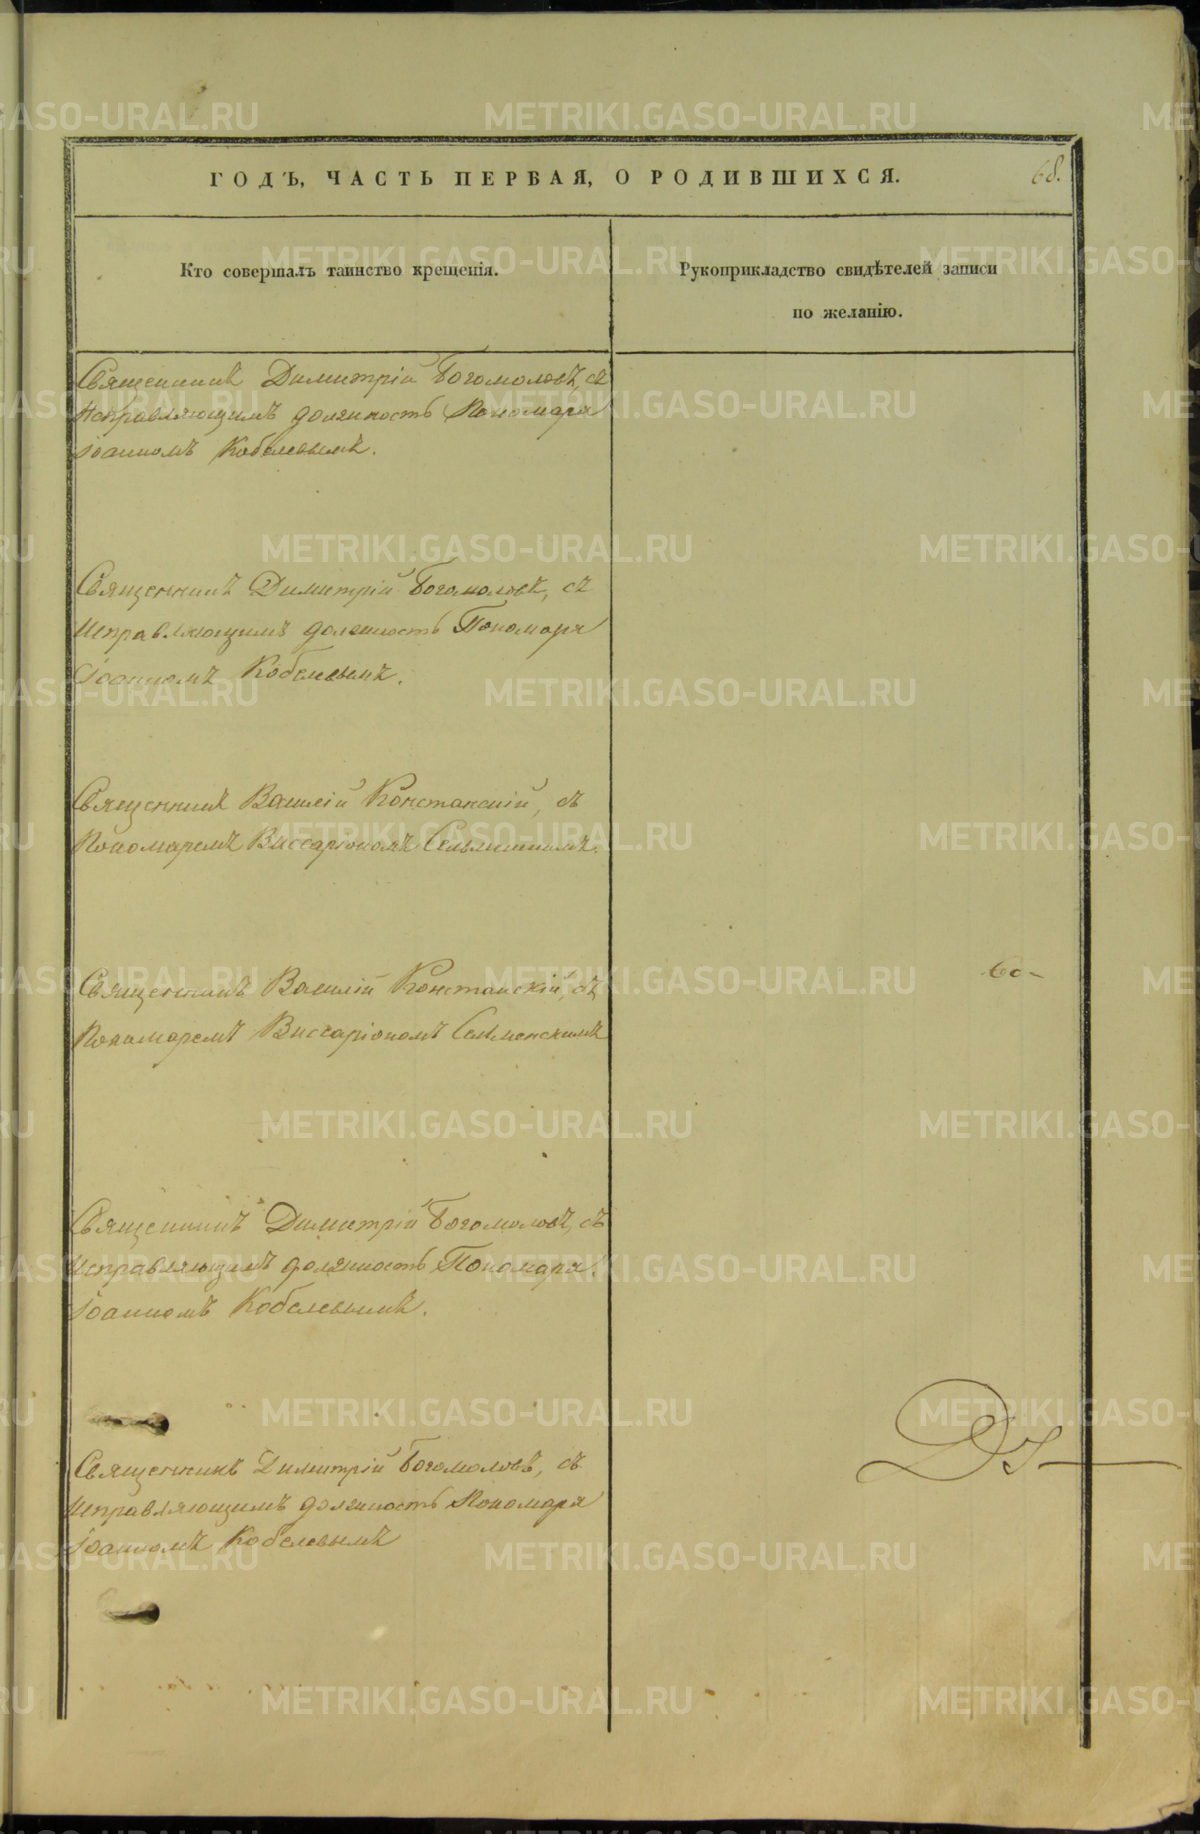 ГОДЪ, ЧАСТЬ ПЕРВАЯ, О РОДИВШИХСЯ.
68.
Кто совершалъ таинство крещенія.
Рукоприкладство свидѣтелей записи
по желанію.
Священникъ Димитрій Богомоловъ, съ
Исправляющимъ должность Пономаря
Іоанномъ Кобелевымъ.
Священникъ Димитрій Богомоловъ, съ
Исправляющимъ должность Пономаря
Іоанномъ Кобелевымъ.
Священникъ Василій Констанскій, съ
Пономаремъ Виссаріономъ
Священникъ Василій Констанскій, съ
Пономаремъ Виссаріономъ Сельменскимъ
Священникъ Димитрій Богомоловъ, съ
Исправляющимъ должность Пономаря
Іоанномъ Кобелевымъ.
Священникъ Димитрій Богомоловъ, съ
Исправляющимъ должность Пономаря
Іоанномъ Кобелевымъ
METRIKI.GASO-URAL.RU